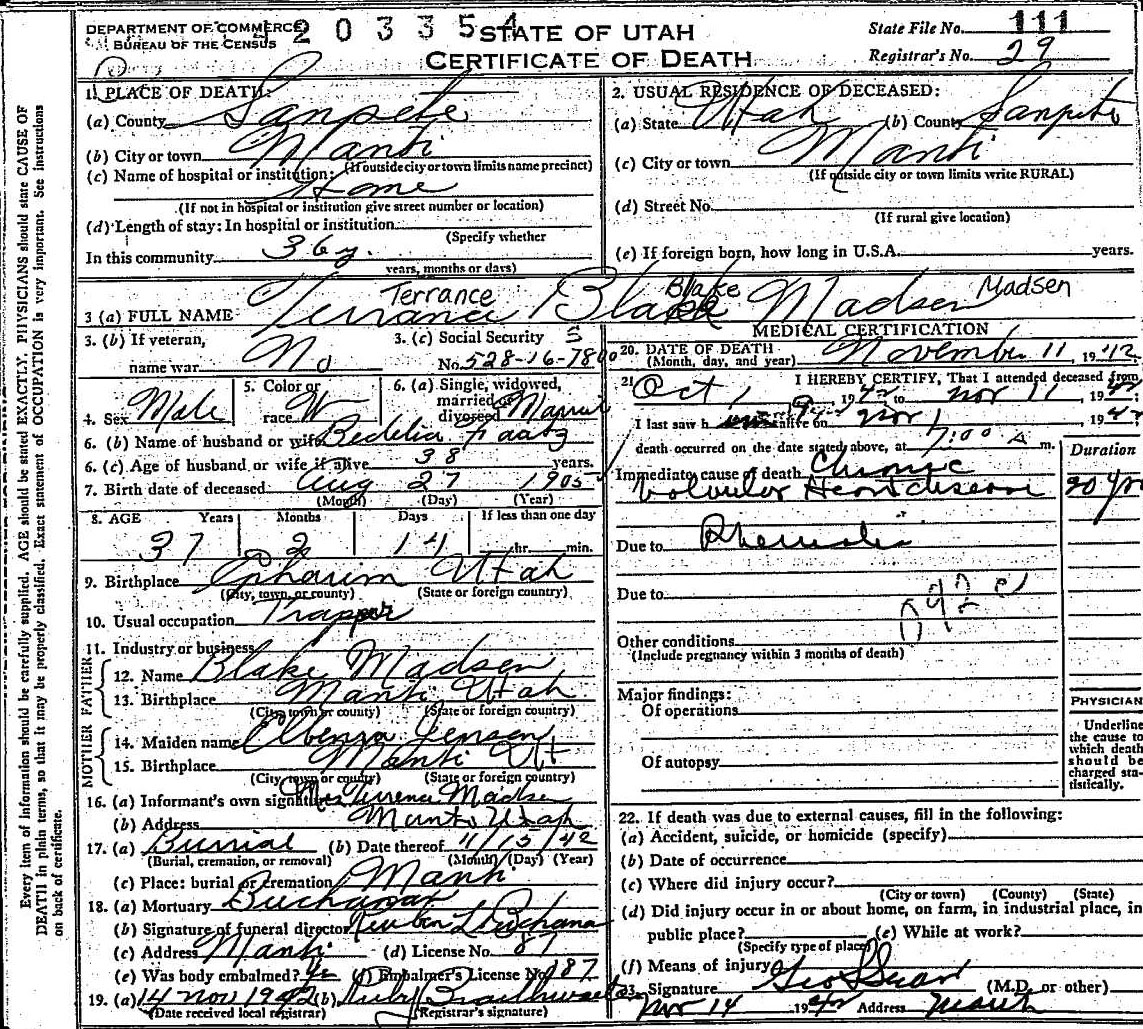 DEPARTMENT OF COMMERCE
BUREAU OF THE CENSUS
203354
STATE OF UTAH
CERTIFICATE OF DEATH
State File No. 111
Registrar's No. 29
Every item of information should be carefully supplied. AGE should be stated EXACTLY. PHYSICIANS should state CAUSE OF
DEATH in plain terms, so that it may be properly classified. Exact statement of OCCUPATION is very important. See instructions
on back of certificate.
1. PLACE OF DEATH:
(a) County Sanpete
(b) City or town Manti
(If outside city or town limits name precinct)
(c) Name of hospital or institution:
Home
(If not in hospital or institution give street number or location)
(d) Length of stay: In hospital or institution
(Specify whether
In this community 36 y.
years, months or days)
2. USUAL RESIDENCE OF DECEASED:
(a) State Utah (b) County Sanpete
(c) City or town Manti
(If outside city or town limits write RURAL)
(d) Street No.
(If rural give location)
(e) If foreign born, how long in U.S.A. years.
Terrance Blake Madsen
3 (a) FULL NAME Terrance Blake Madsen
3. (b) If veteran,
name war No
3. (c) Social Security
No. 528-16-7800
4. Sex Male
5. Color or
race W
6. (a) Single, widowed,
married or
divorced Married
6. (b) Name of husband or wife Bedelia
6. (c) Age of husband or wife if alive 38 years.
7. Birth date of deceased Aug 27 1905
(Month) (Day) (Year)
8. AGE Years Months Days If less than one day
37 2 14 hr. min.
9. Birthplace Ephraim Utah
(City, town, or county) (State or foreign country)
10. Usual occupation Trapper
11. Industry or business
FATHER
12. Name Blake Madsen
13. Birthplace Manti Utah
(City, town or county) (State or foreign country)
MOTHER
14. Maiden name Jensen
15. Birthplace Manti Ut
(City, town or county) (State or foreign country)
16. (a) Informant's own signature Mrs Terrence Madsen
(b) Address Manti Utah
17. (a) Burrial (b) Date thereof 11/15/42
(Burial, cremation, or removal) (Month) (Day) (Year)
(c) Place: burial or cremation Manti
18. (a) Mortuary Buchanan
(b) Signature of funeral director Reuben L Buchanan
(c) Address Manti (d) License No. 87
(e) Was body embalmed? Yes (f) Embalmer's License No. 187
19. (a) 14 Nov 1942 (b) Ruby Braithwaite
(Date received local registrar) (Registrar's signature)
MEDICAL CERTIFICATION
20. DATE OF DEATH
(Month, day, and year) November 11, 1942
21. I HEREBY CERTIFY, That I attended deceased from
Oct 1, 1942 to Nov 11, 1942;
I last saw h alive on Nov 1 1942
death occurred on the date stated above, at 7:00 A m.
Duration
Immediate cause of death Chronic
Valvular Heart disease 20 yrs
Due to
Due to
Other conditions
(Include pregnancy within 3 months of death)
Major findings:
Of operations
Of autopsy
PHYSICIAN
Underline
the cause to
which death
should be
charged sta-
tistically.
22. If death was due to external causes, fill in the following:
(a) Accident, suicide, or homicide (specify)
(b) Date of occurrence
(c) Where did injury occur?
(City or town) (County) (State)
(d) Did injury occur in or about home, on farm, in industrial place, in
public place? (e) While at work?
(Specify type of place)
(f) Means of injury
23. Signature Geo (M.D. or other)
Nov 14 1942 Address Manti